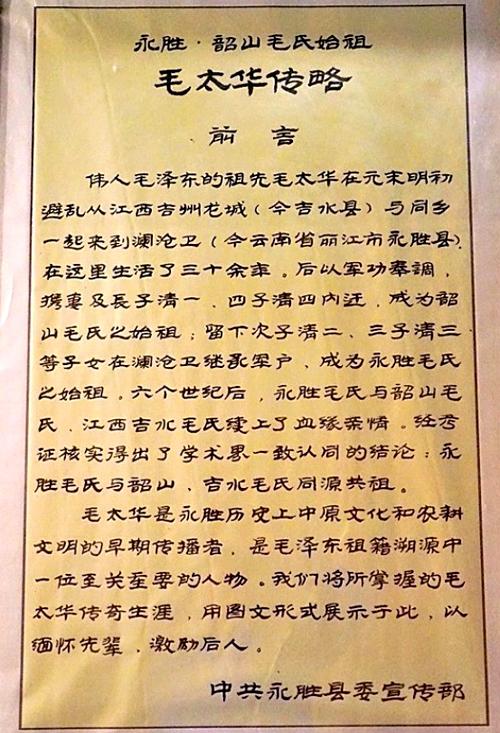 永胜·韶山毛氏始祖
毛太华传略
前 言
伟人毛泽东的祖先毛太华在元末明初
避乱从江西吉州龙城（今吉水县）与同乡
一起来到澜沧卫（今云南省丽江市永胜县）。
在这里生活了三十余年。后以军功奉調，
携妻及長子清一、四子清四内迁，成为韶
山毛氏之始祖；留下次子清二、三子清三
等子女在澜沧卫继承军户、成为永胜毛氏
之始祖。六个世纪后，永胜毛氏与韶山毛
氏、江西吉水毛氏续上了血缘亲情。经考
证核实得出了学术界一致认同的结论：永
胜毛氏与韶山、吉水毛氏同源共祖。
毛太华是永胜历史上中原文化和农耕
文明的早期传播者，是毛泽东祖籍溯源中
一位至关至要的人物。我们将所掌握的毛
太华传奇生涯，用图文形式展示于此，以
缅怀先辈，激励后人。
中共永胜县委宣传部